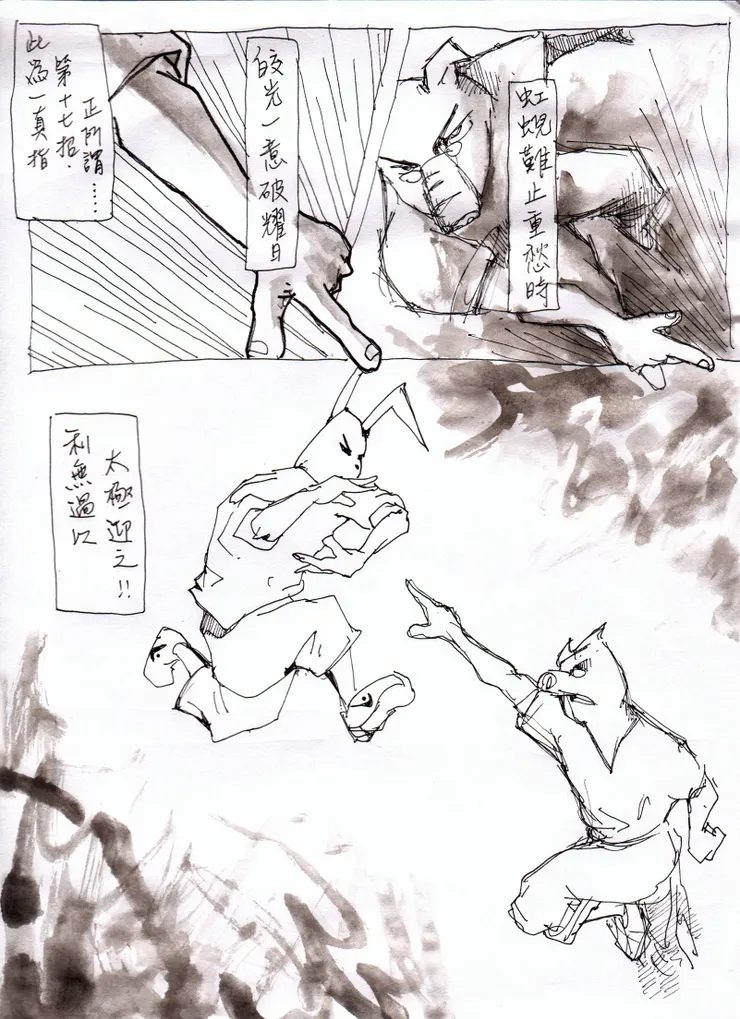 虹蜺難止重愁時
皎光一意破耀日
正所謂……
第十七招.
此為一真指
太極迎之!!
利無過以